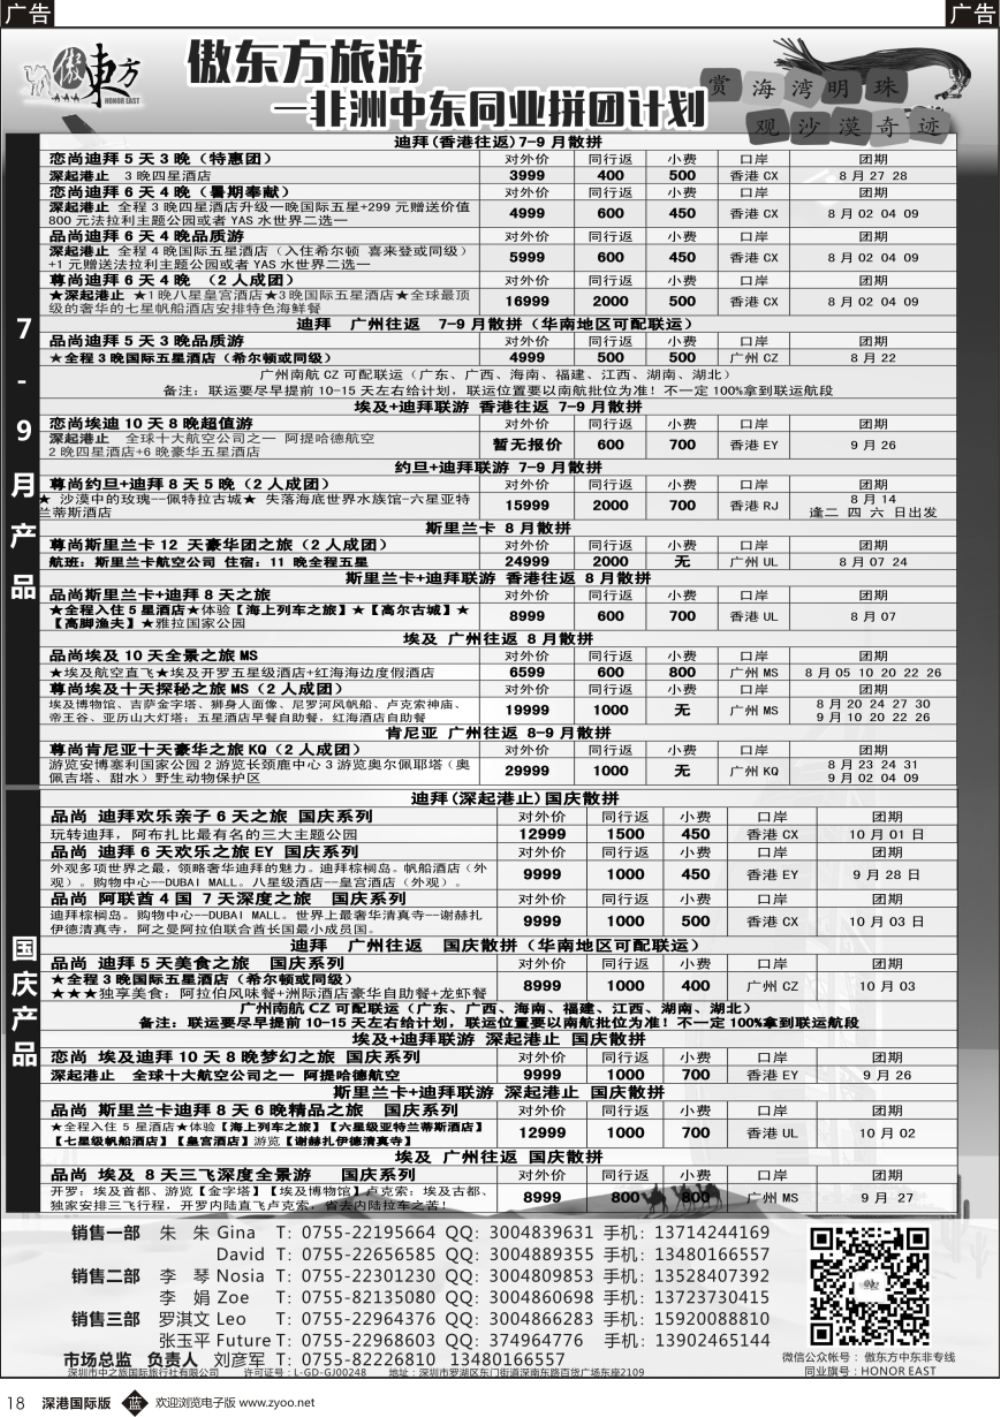 广告
广告
傲東方
HONOR EAST
傲东方旅游
—非洲中东同业拼团计划
赏海湾明珠
观沙漠奇迹
7-9月产品
迪拜(香港往返)7-9月散拼
恋尚迪拜5天3晚（特惠团） 对外价 同行返 小费 口岸 团期
深起港止 3晚四星酒店 3999 400 500 香港CX 8月27 28
恋尚迪拜6天4晚（暑期奉献） 对外价 同行返 小费 口岸 团期
深起港止 全程3晚四星酒店升级一晚国际五星+299元赠送价值
800元法拉利主题公园或者YAS水世界二选一 4999 600 450 香港CX 8月02 04 09
品尚迪拜6天4晚品质游 对外价 同行返 小费 口岸 团期
深起港止 全程4晚国际五星酒店（入住希尔顿 喜来登或同级）
+1元赠送法拉利主题公园或者YAS水世界二选一 5999 600 450 香港CX 8月02 04 09
尊尚迪拜6天4晚（2人成团） 对外价 同行返 小费 口岸 团期
★深起港止 ★1晚八星皇宫酒店★3晚国际五星酒店★全球最顶
级的奢华的七星帆船酒店安排特色海鲜餐 16999 2000 500 香港CX 8月02 04 09
迪拜 广州往返 7-9月散拼（华南地区可配联运）
品尚迪拜5天3晚品质游 对外价 同行返 小费 口岸 团期
★全程3晚国际五星酒店（希尔顿或同级） 4999 500 500 广州CZ 8月22
广州南航CZ可配联运（广东、广西、海南、福建、江西、湖南、湖北）
备注：联运要尽早提前10-15天左右给计划，联运位置要以南航批位为准！不一定100%拿到联运航段
埃及+迪拜联游 香港往返 7-9月散拼
恋尚埃迪10天8晚超值游 对外价 同行返 小费 口岸 团期
深起港止 全球十大航空公司之一 阿提哈德航空
2晚四星酒店+6晚豪华五星酒店 暂无报价 600 700 香港EY 9月26
约旦+迪拜联游 7-9月散拼
尊尚约旦+迪拜8天5晚（2人成团） 对外价 同行返 小费 口岸 团期
★ 沙漠中的玫瑰--佩特拉古城★ 失落海底世界水族馆-六星亚特
兰蒂斯酒店 15999 2000 700 香港RJ 8月14
逢二 四 六 日出发
斯里兰卡 8月散拼
尊尚斯里兰卡12 天豪华团之旅（2人成团） 对外价 同行返 小费 口岸 团期
航班：斯里兰卡航空公司 住宿：11 晚全程五星 24999 2000 无 广州UL 8月07 24
斯里兰卡+迪拜联游 香港往返 8月散拼
品尚斯里兰卡+迪拜8天之旅 对外价 同行返 小费 口岸 团期
★全程入住5星酒店★体验【海上列车之旅】★【高尔古城】★
【高脚渔夫】★雅拉国家公园 8999 600 700 香港UL 8月07
埃及 广州往返 8月散拼
品尚埃及10天全景之旅MS 对外价 同行返 小费 口岸 团期
★埃及航空直飞★埃及开罗五星级酒店+红海海边度假酒店 6599 600 800 广州MS 8月05 10 20 22 26
尊尚埃及十天探秘之旅MS（2人成团） 对外价 同行返 小费 口岸 团期
埃及博物馆、吉萨金字塔、狮身人面像、尼罗河风帆船、卢克索神庙、
帝王谷、亚历山大灯塔；五星酒店早餐自助餐，红海酒店自助餐 19999 1000 无 广州MS 8月20 24 27 30
9月10 20 22 26
肯尼亚 广州往返 8-9月散拼
尊尚肯尼亚十天豪华之旅KQ（2人成团） 对外价 同行返 小费 口岸 团期
游览安博塞利国家公园2游览长颈鹿中心3游览奥尔佩耶塔（奥
佩吉塔、甜水）野生动物保护区 29999 1000 无 广州KQ 8月23 24 31
9月02 04 09
国庆产品
迪拜(深起港止)国庆散拼
品尚 迪拜欢乐亲子6天之旅 国庆系列 对外价 同行返 小费 口岸 团期
玩转迪拜，阿布扎比最有名的三大主题公园 12999 1500 450 香港CX 10月01日
品尚 迪拜6天欢乐之旅EY 国庆系列 对外价 同行返 小费 口岸 团期
外观多项世界之最，领略奢华迪拜的魅力。迪拜棕榈岛。帆船酒店（外
观）。购物中心--DUBAI MALL。八星级酒店--皇宫酒店（外观）。 9999 1000 450 香港EY 9月28日
品尚 阿联酋4国 7天深度之旅 国庆系列 对外价 同行返 小费 口岸 团期
迪拜棕榈岛。购物中心--DUBAI MALL。世界上最奢华清真寺--谢赫扎
伊德清真寺，阿之曼阿拉伯联合酋长国最小成员国。 9999 1000 500 香港CX 10月03日
迪拜 广州往返 国庆散拼（华南地区可配联运）
品尚 迪拜5天美食之旅 国庆系列 对外价 同行返 小费 口岸 团期
★全程3晚国际五星酒店（希尔顿或同级）
★★★独享美食：阿拉伯风味餐+洲际酒店豪华自助餐+龙虾餐 8999 1000 400 广州CZ 10月03
广州南航CZ可配联运（广东、广西、海南、福建、江西、湖南、湖北）
备注：联运要尽早提前10-15天左右给计划，联运位置要以南航批位为准！不一定100%拿到联运航段
埃及+迪拜联游 深起港止 国庆散拼
恋尚 埃及迪拜10天8晚梦幻之旅 国庆系列 对外价 同行返 小费 口岸 团期
深起港止 全球十大航空公司之一 阿提哈德航空 9999 1000 700 香港EY 9月26
斯里兰卡+迪拜联游 深起港止 国庆散拼
品尚 斯里兰卡迪拜8天6晚精品之旅 国庆系列 对外价 同行返 小费 口岸 团期
★全程入住 5 星酒店★体验【海上列车之旅】【六星级亚特兰蒂斯酒店】
【七星级帆船酒店】【皇宫酒店】游览【谢赫扎伊德清真寺】 12999 1000 700 香港UL 10月02
埃及 广州往返 国庆散拼
品尚 埃及 8天三飞深度全景游 国庆系列 对外价 同行返 小费 口岸 团期
开罗：埃及首都、游览【金字塔】【埃及博物馆】卢克索：埃及古都、
独家安排三飞行程，开罗内陆直飞卢克索，省去内陆拉车之苦！ 8999 800 800 广州MS 9月 27
销售一部 朱 朱 Gina T: 0755-22195664 QQ: 3004839631 手机: 13714244169
David T: 0755-22656585 QQ: 3004889355 手机: 13480166557
销售二部 李 琴 Nosia T: 0755-22301230 QQ: 3004809853 手机: 13528407392
李 娟 Zoe T: 0755-82135080 QQ: 3004860698 手机: 13723730415
销售三部 罗淇文 Leo T: 0755-22964376 QQ: 3004866283 手机: 15920088810
张玉平 Future T: 0755-22968603 QQ: 374964776 手机: 13902465144
市场总监 负责人 刘彦军 T: 0755-82226810 13480166557
深圳市中之旅国际旅行社有限公司 许可证号：L-GD-GJ00248 地址：深圳市罗湖区东门街道深南东路百货广场东座2109
微信公众帐号：傲东方中东非专线
同业旗号：HONOR EAST
18 深港国际版 蓝 欢迎浏览电子版 www.zyoo.net